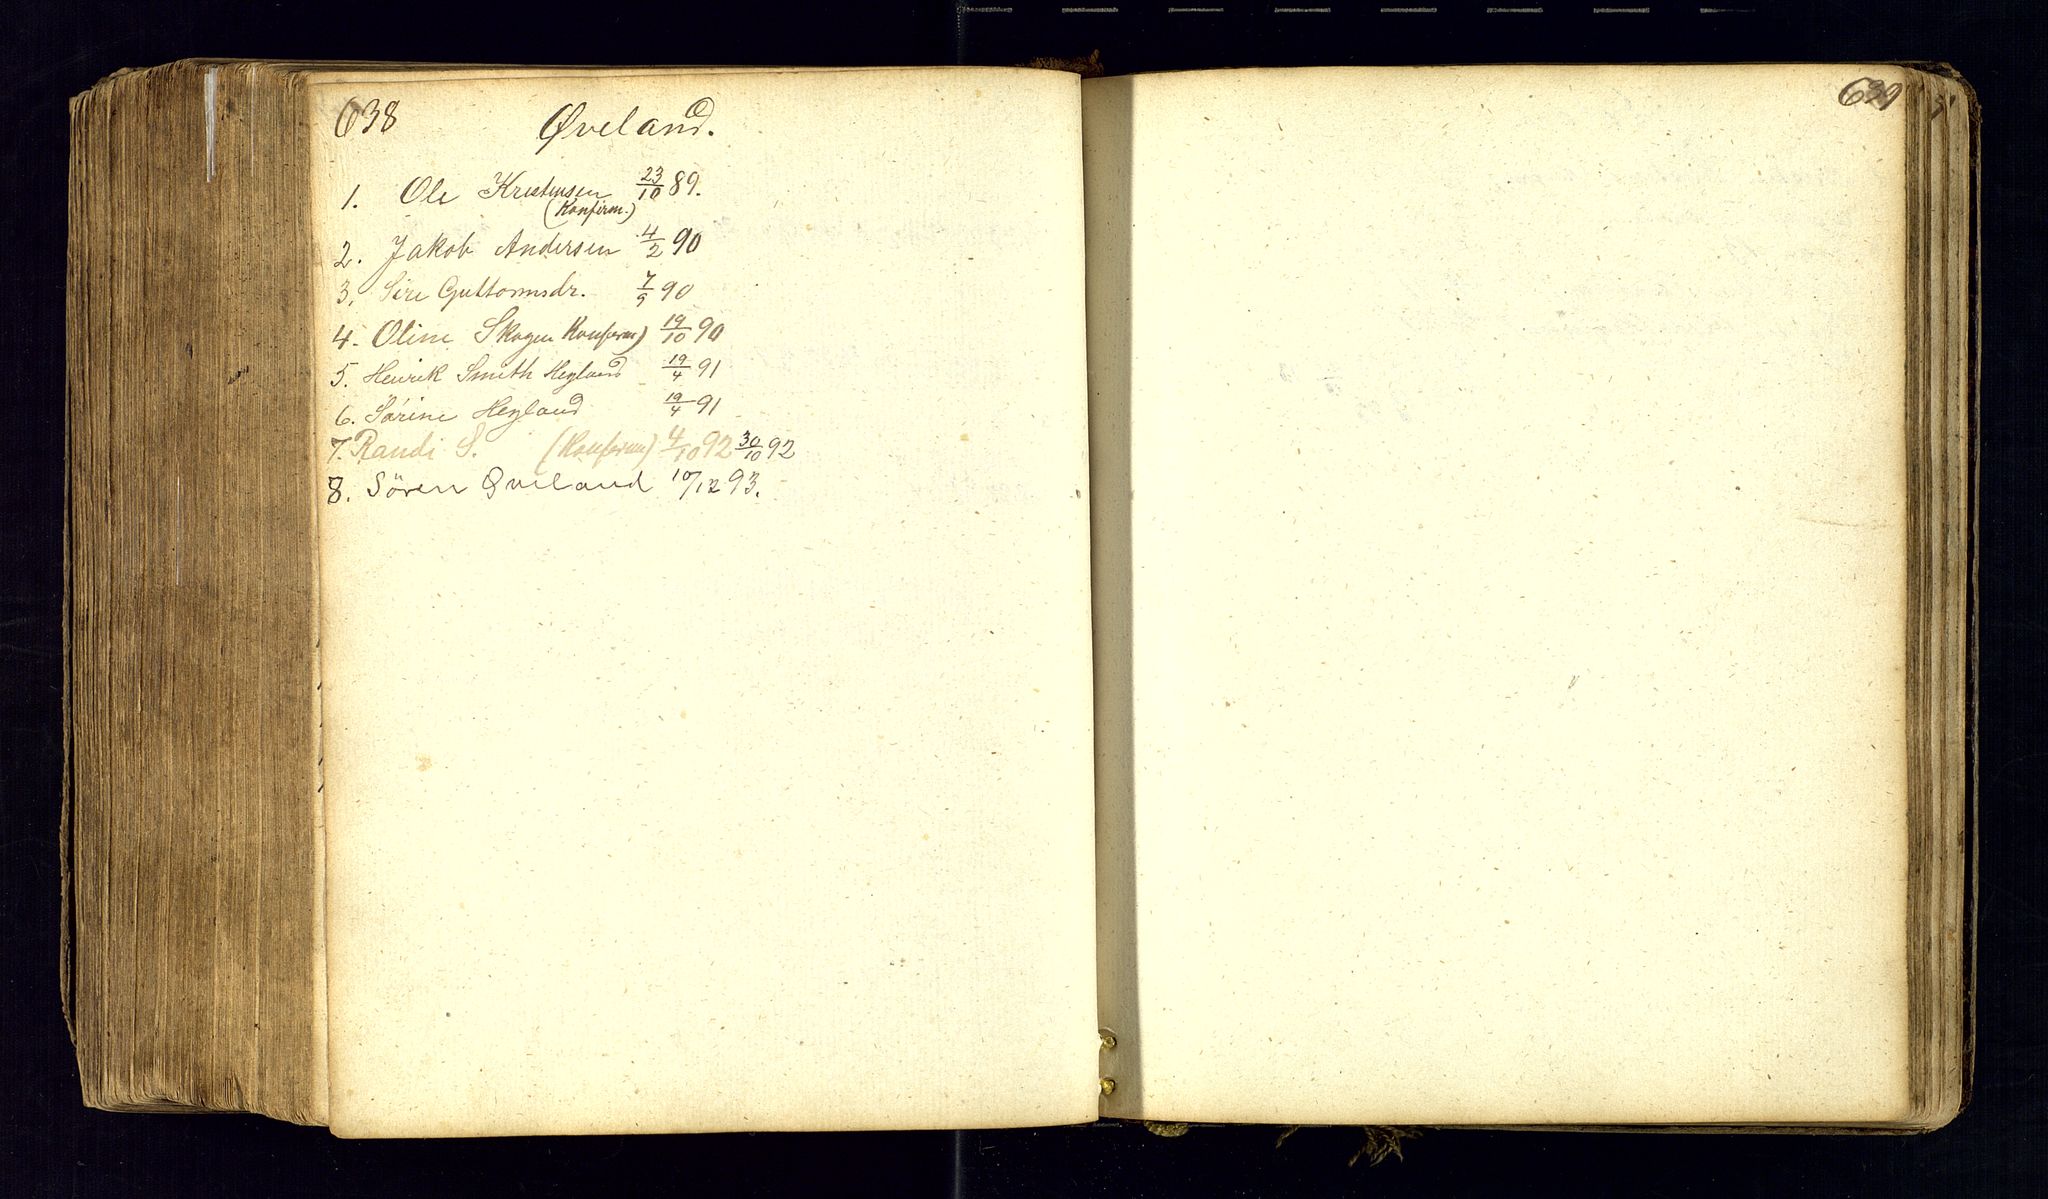 638
Øveland.
1. Ole Kristensen 23/10 89.
(Konfirm.)
2. Jakob Andersen 4/2 90
3. Sire Guttormsdr. 7/9 90
4. Oline Skogen Konfirm) 19/10 90
5. Henrik Smith Heyland 19/4 91
6. Sørine Heyland 19/4 91
7. Randi S. (Konfirm) 4/10 92 30/10 92
8. Søren Øveland 10/12 93.
639